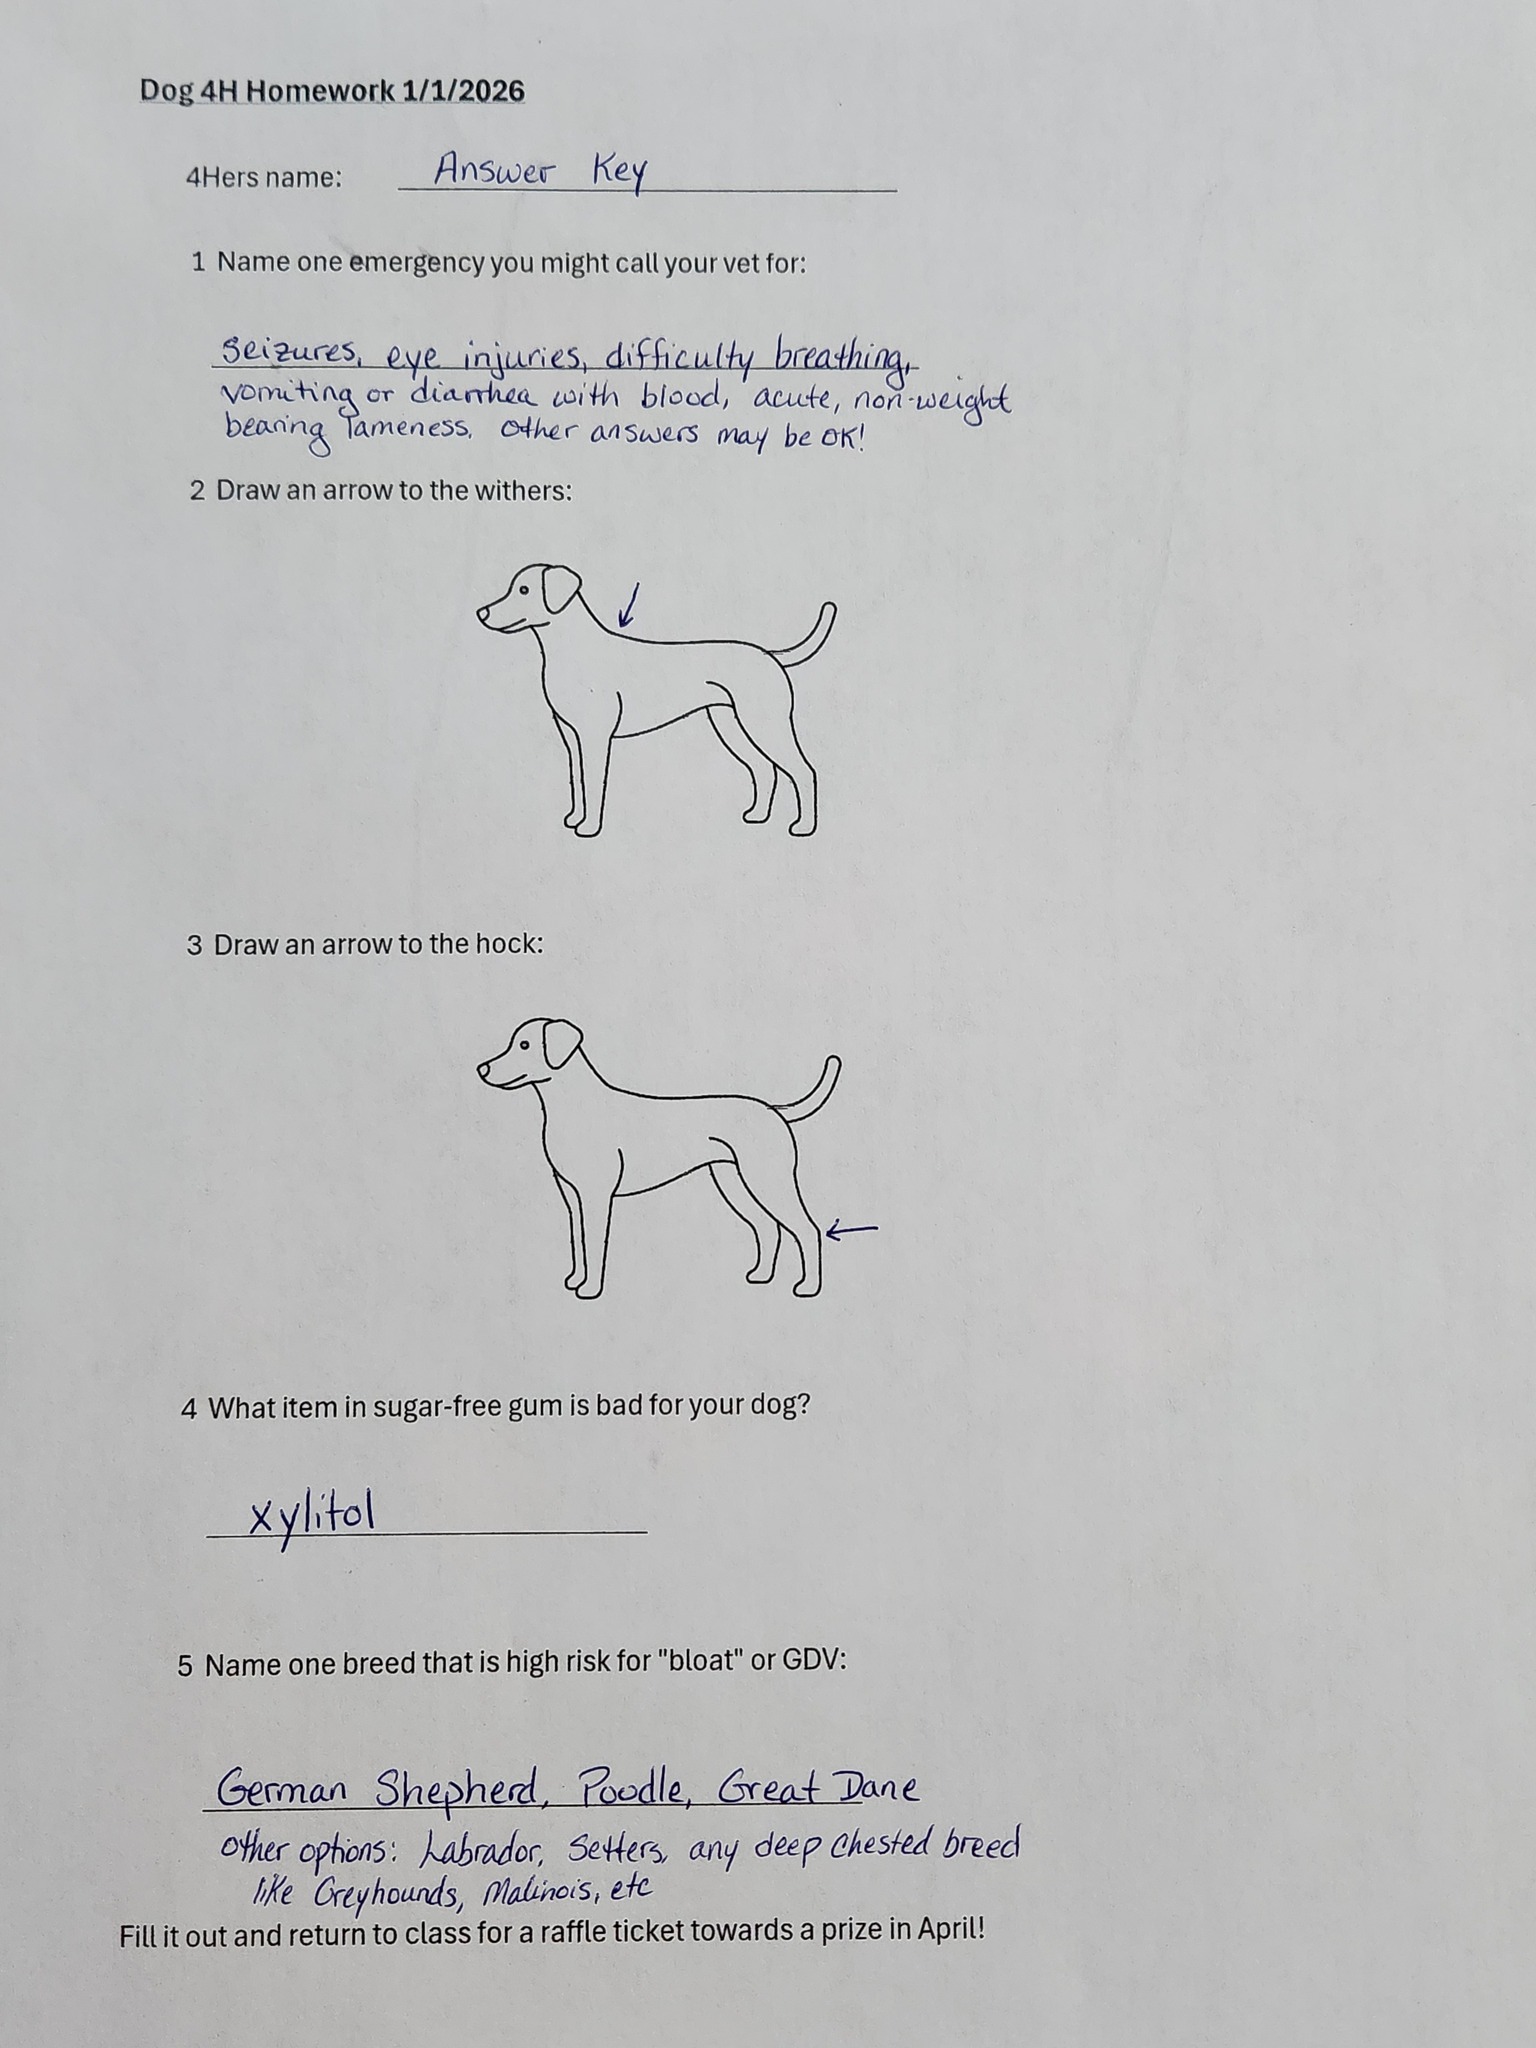 Dog 4H Homework 1/1/2026
4Hers name: Answer Key
1 Name one emergency you might call your vet for:
Seizures, eye injuries, difficulty breathing,
vomiting or diarrhea with blood, acute, non-weight
bearing lameness. Other answers may be OK!
2 Draw an arrow to the withers:
3 Draw an arrow to the hock:
4 What item in sugar-free gum is bad for your dog?
xylitol
5 Name one breed that is high risk for "bloat" or GDV:
German Shepherd, Poodle, Great Dane
Other options: Labrador, Setters, any deep chested breed
like Greyhounds, Malinois, etc
Fill it out and return to class for a raffle ticket towards a prize in April!